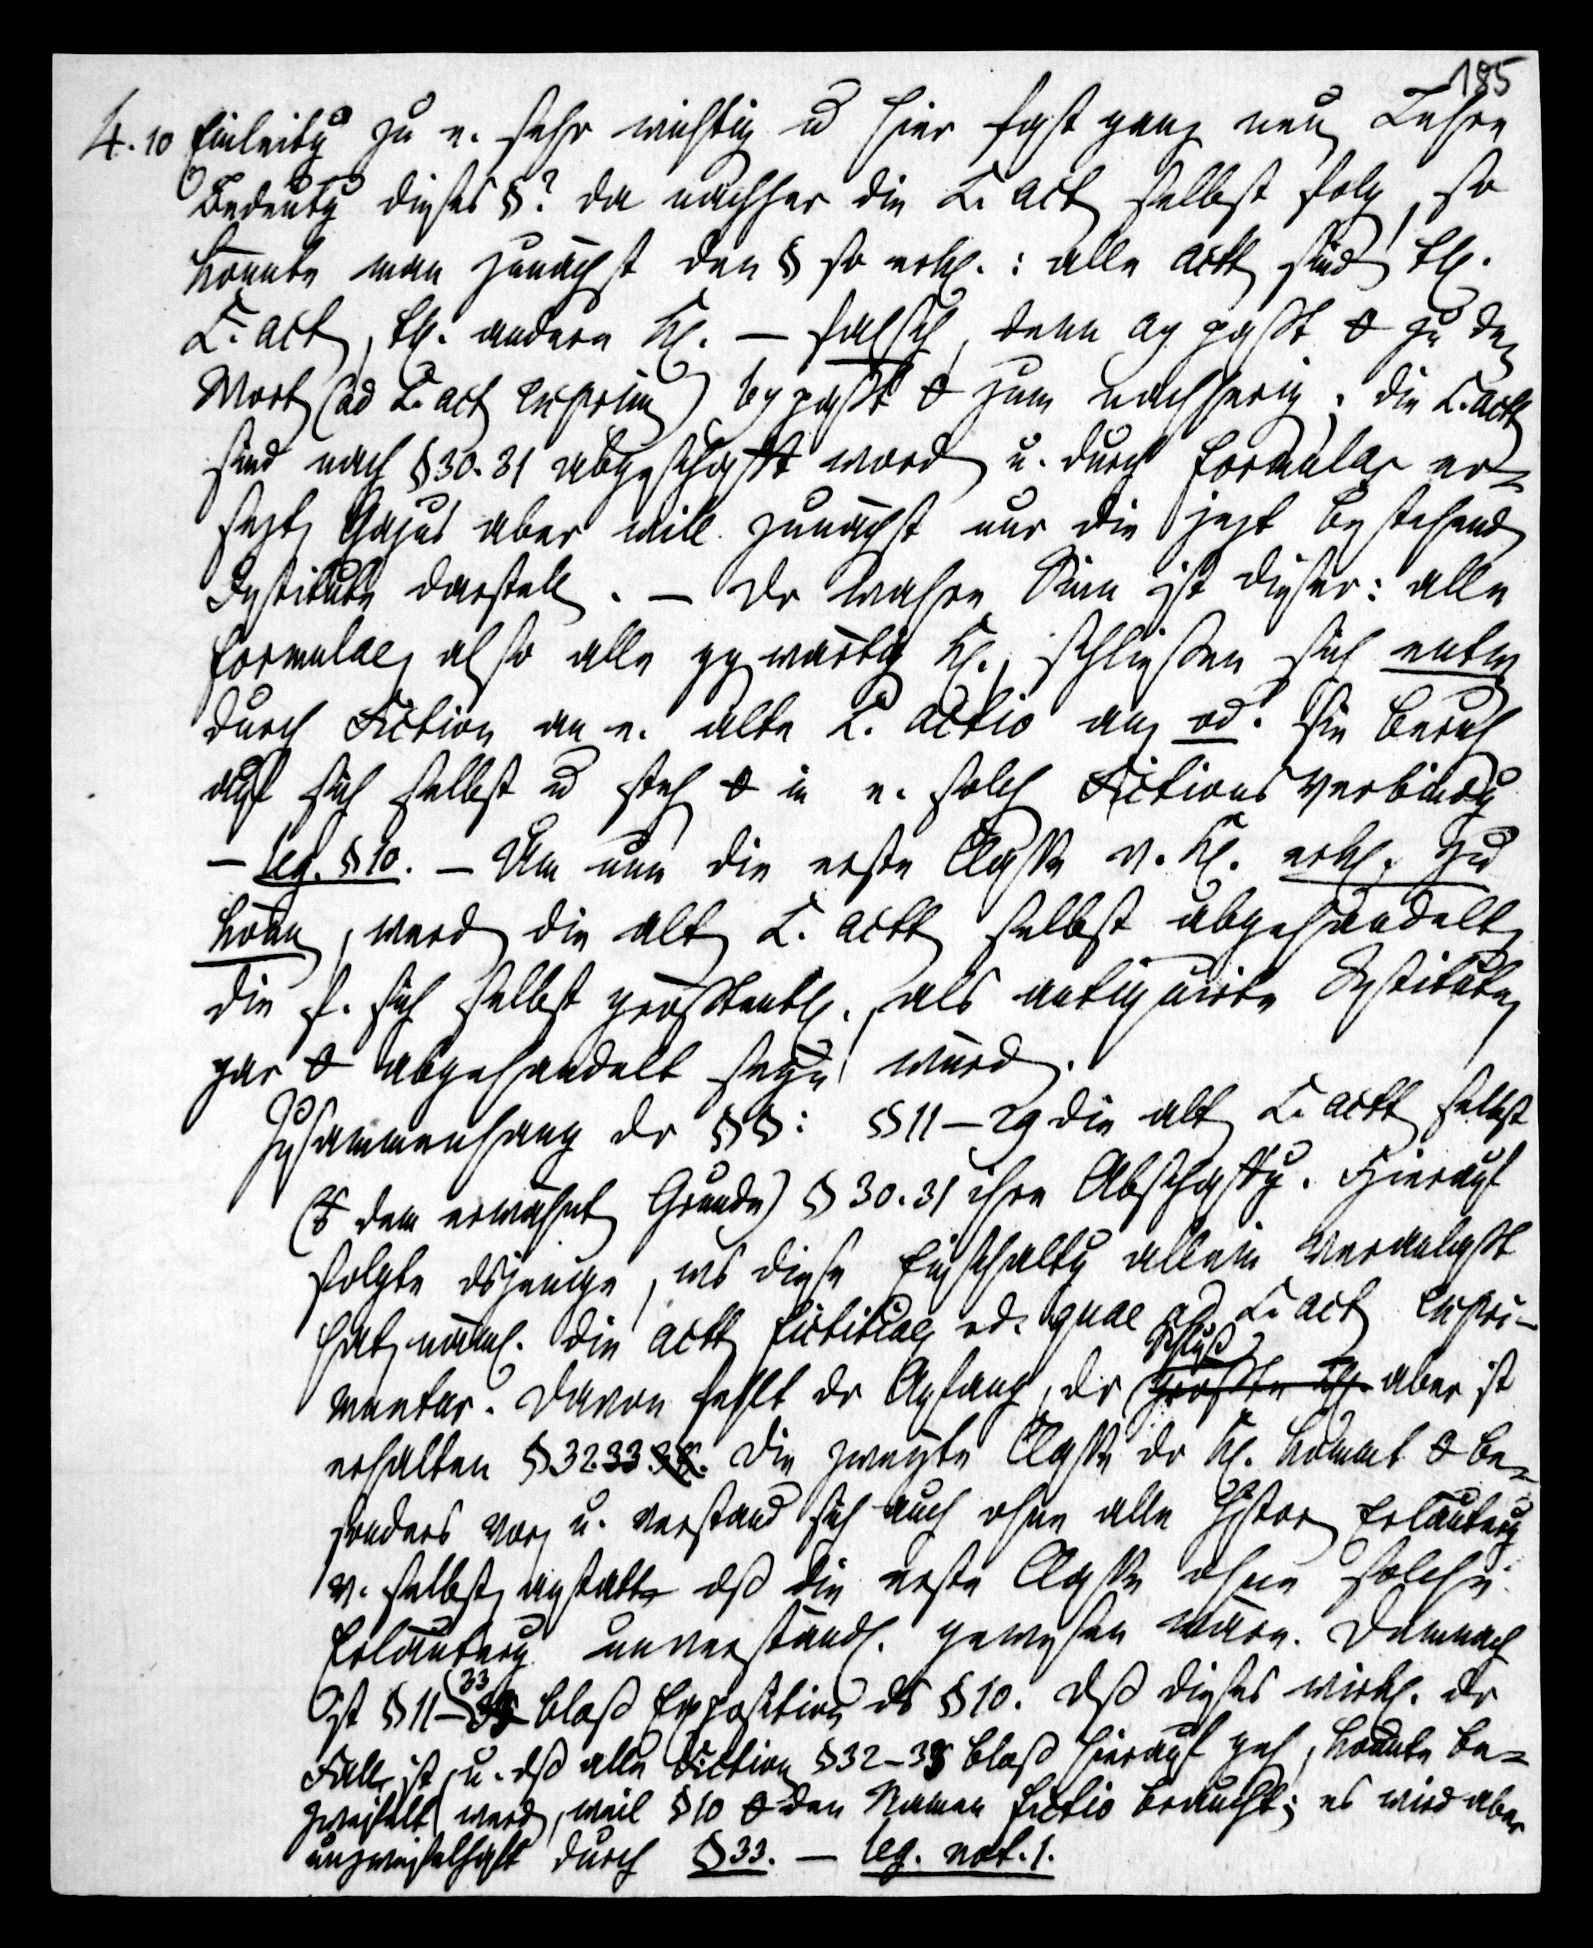 185
4.10 Einleitg zu e. sehr wichtig u hier fast ganz neu Lehre
Bedeutg dieses §? da nachher die L. act selbst folg, so
könnte man zunächst den § so erkl.: alle actt sind thl.
L. act, thl. andere Kl. — falsch, denn a) paßt 0 zu den
Wort (ad L. act exprim) b) paßt 0 zum nachherig; die L. actt
sind nach § 30. 31 abgeschafft word u. durch formulas er=
sezt, Gajus aber will zunächst nur die jezt bestehend
Institute darstell. — Dr wahre Sinn ist dieser: alle
formulae, also alle ggwärtig Kl., schließen sich entw
durch Fiction an e. alte L. actio an, od. sie beruh
auf sich selbst u steh 0 in e. solch Fictionsverbindg
— leg. § 10. — Um nun die erste Classe v. Kl. erkl. zu
könn, werd die alt L. actt selbst abgehandelt,
die f. sich selbst größtenthl., als antiquirte Institute,
gar 0 abgehandelt seyn würd.
Zusammenhang dr §§: § 11—29 die alt L. actt selbst
( dem erwähnt Grunde) § 30. 31 ihre Abschaffg. Hierauf
folgte dsjenige, ws diese Einschaltg allein veranlaßt
hat, näml. die actt fictitiae, od. quae ad L. act expri-
muntur. Davon fehlt dr Anfang, dr größte Thl. Schluß aber ist
erhalten § 32. 33 . Die zweyte Classe dr Kl. kommt 0 be=
sonders vor, u. verstand sich auch ohne alle histor Erläuterg
v. selbst, anstatt dß die erste Classe ohne solche
Erläuterg unverständl. gewesen wäre. Demnach
ist § 11—33 bloß Exposition ds § 10. Dß dieses wirkl. dr
Fall ist, u. dß alle Fiction § 32—33 bloß hierauf geh, könnte be=
zweifelt werd, weil § 10 0 den Namen fictio braucht; es wird aber
unzweifelhaft durch § 33. — leg. not. 1.